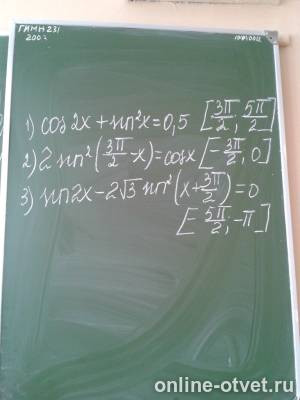 ГИМН 231
200?
1) cos2x + sin²x = 0,5 [3π/2; 5π/2]
2) 2 sin²(3π/2 - x) = cosx [-3π/2; 0]
3) sin2x - 2√3 sin²(x + 3π/2) = 0
[-5π/2; -π]
online-otvet.ru